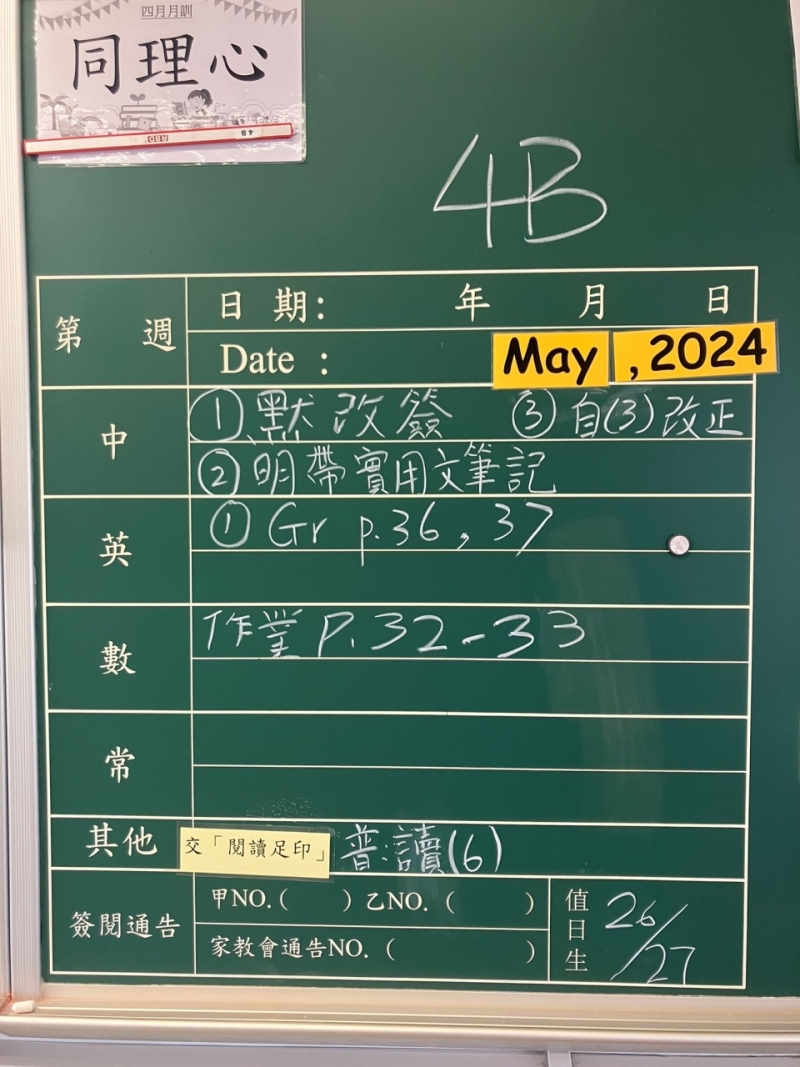 四月月訓
同理心
RBD 4B
4B
第 週
日 期: 年 月 日
Date : May , 2024
中
①默改簽 ③自(3)改正
②明帶實用文筆記
英
①Gr p.36, 37
數
作業 P.32-33
常
其他 交「閱讀足印」 普:讀(6)
簽閱通告
甲NO.( ) 乙NO. ( )
家教會通告NO. ( )
值日生 26/27